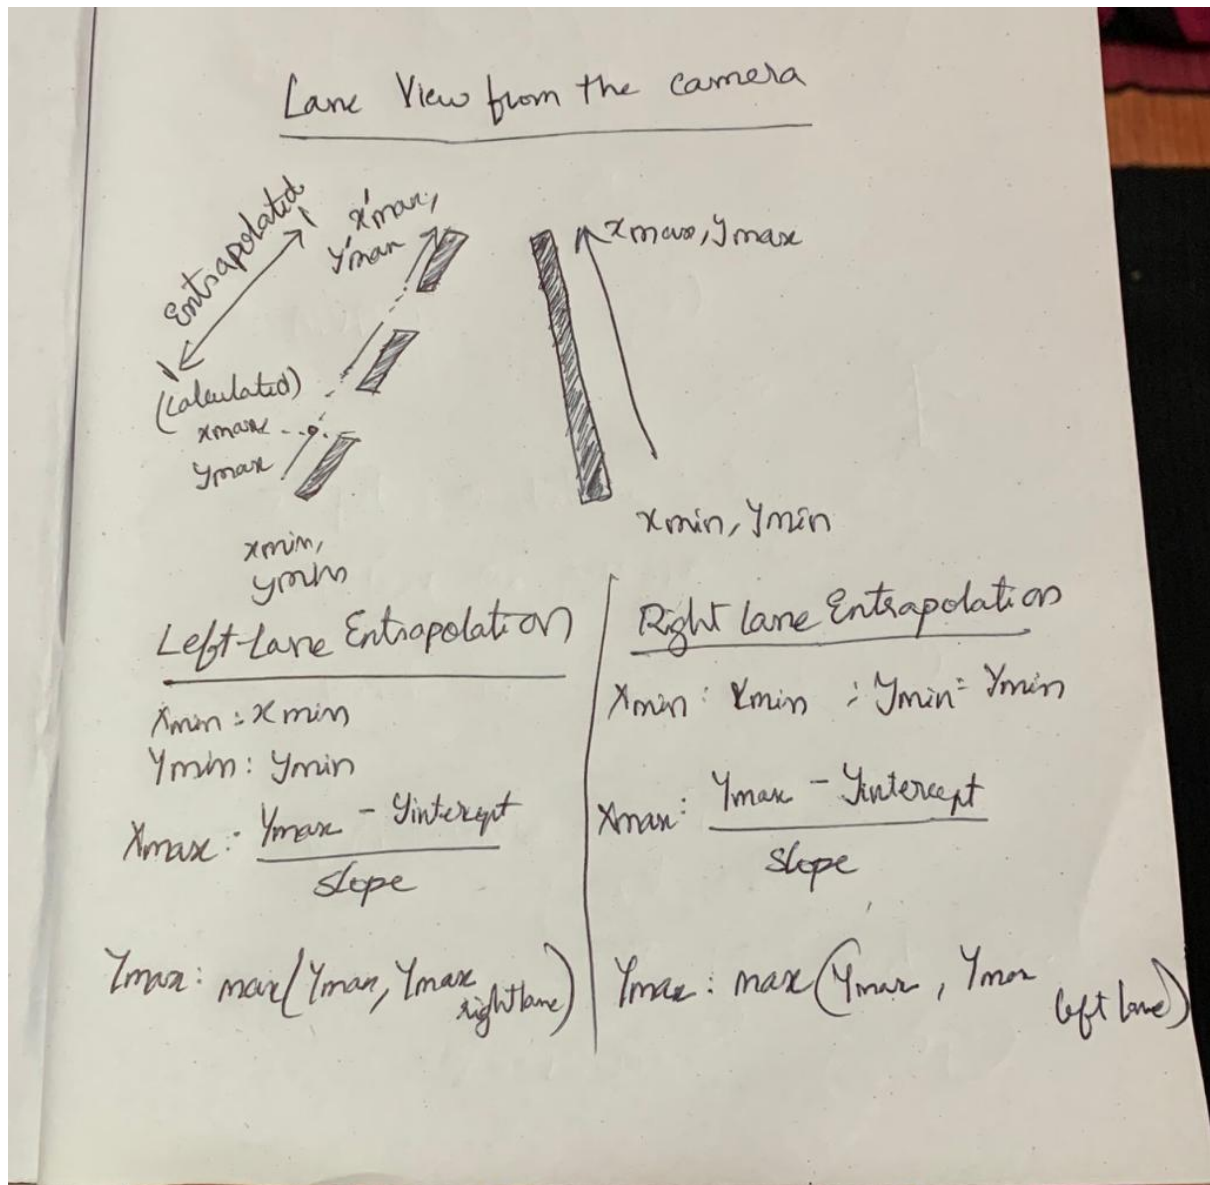 Lane View from the camera
Entrapolated
x'max,
y'max
xmax, ymax
(calculated)
xmax
ymax
xmin, ymin
xmin,
ymin
Left-Lane Entrapolation
Xmin : xmin
Ymin : ymin
Xmax : Ymax - Yintercept
slope
Ymax : max(Ymax, Ymax right lane)
Right Lane Entrapolation
Xmin : Xmin ; Ymin = Ymin
Xmax : Ymax - Yintercept
slope
Ymax : max(Ymax, Ymax left lane)